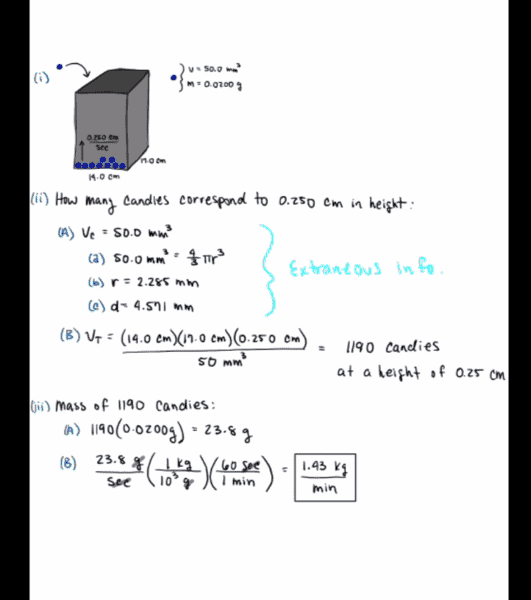 (i)
V = 50.0 mm³
m = 0.0200 g
0.250 cm
sec
17.0 cm
14.0 cm
(ii) How many candies correspond to 0.250 cm in height:
(A) Vc = 50.0 mm³
(a) 50.0 mm³ = 4/3 πr³
(b) r = 2.285 mm
(c) d = 4.571 mm
Extraneous info.
(B) VT = (14.0 cm)(17.0 cm)(0.250 cm) / 50 mm³ = 1190 candies
at a height of 0.25 cm
(iii) Mass of 1190 candies:
(A) 1190(0.0200g) = 23.8 g
(B) 23.8 g/sec (1 kg/10³ g)(60 sec/1 min) = 1.43 kg/min